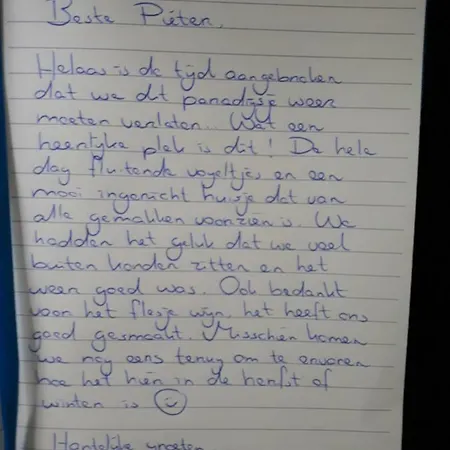 Beste Pieten,
Helaas is de tijd aangebroken
dat we dit paradijsje weer
moeten verlaten. Wat een
heerlijke plek is dit! De hele
dag fluitende vogeltjes en een
mooi ingericht huisje dat van
alle gemakken voorzien is. We
hadden het geluk dat we veel
buiten konden zitten en het
weer goed was. Ook bedankt
voor het flesje wijn, het heeft ons
goed gesmaakt. Misschien komen
we nog eens terug om te ervaren
hoe het hier in de herfst of
winter is
Hartelijke groeten